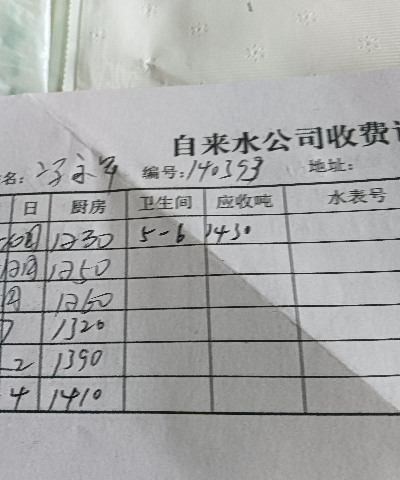 自来水公司收费
名:冯永军 编号:140393 地址:
日 厨房 卫生间 应收吨 水表号
10月 1230 5-6 1430
12月 1250
月 1260
7 1320
2 1390
4 1410